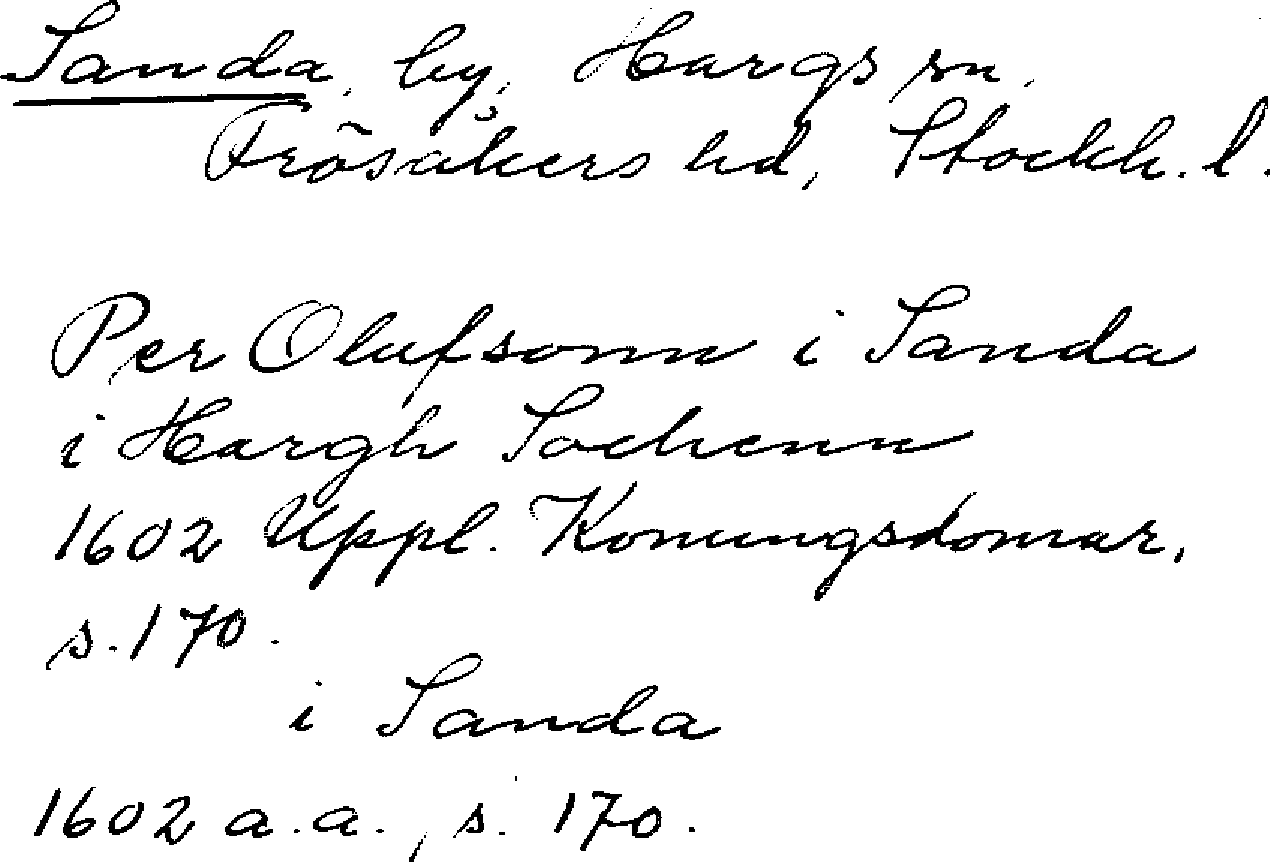 Sanda, by, Hargs sn,
Frösåkers hd, Stockh. l.
Per Olufsonn i Sanda
i Hargh Sochenn
1602 Uppl. Konungsdomar,
s. 170.
i Sanda
1602 a.a., s. 170.